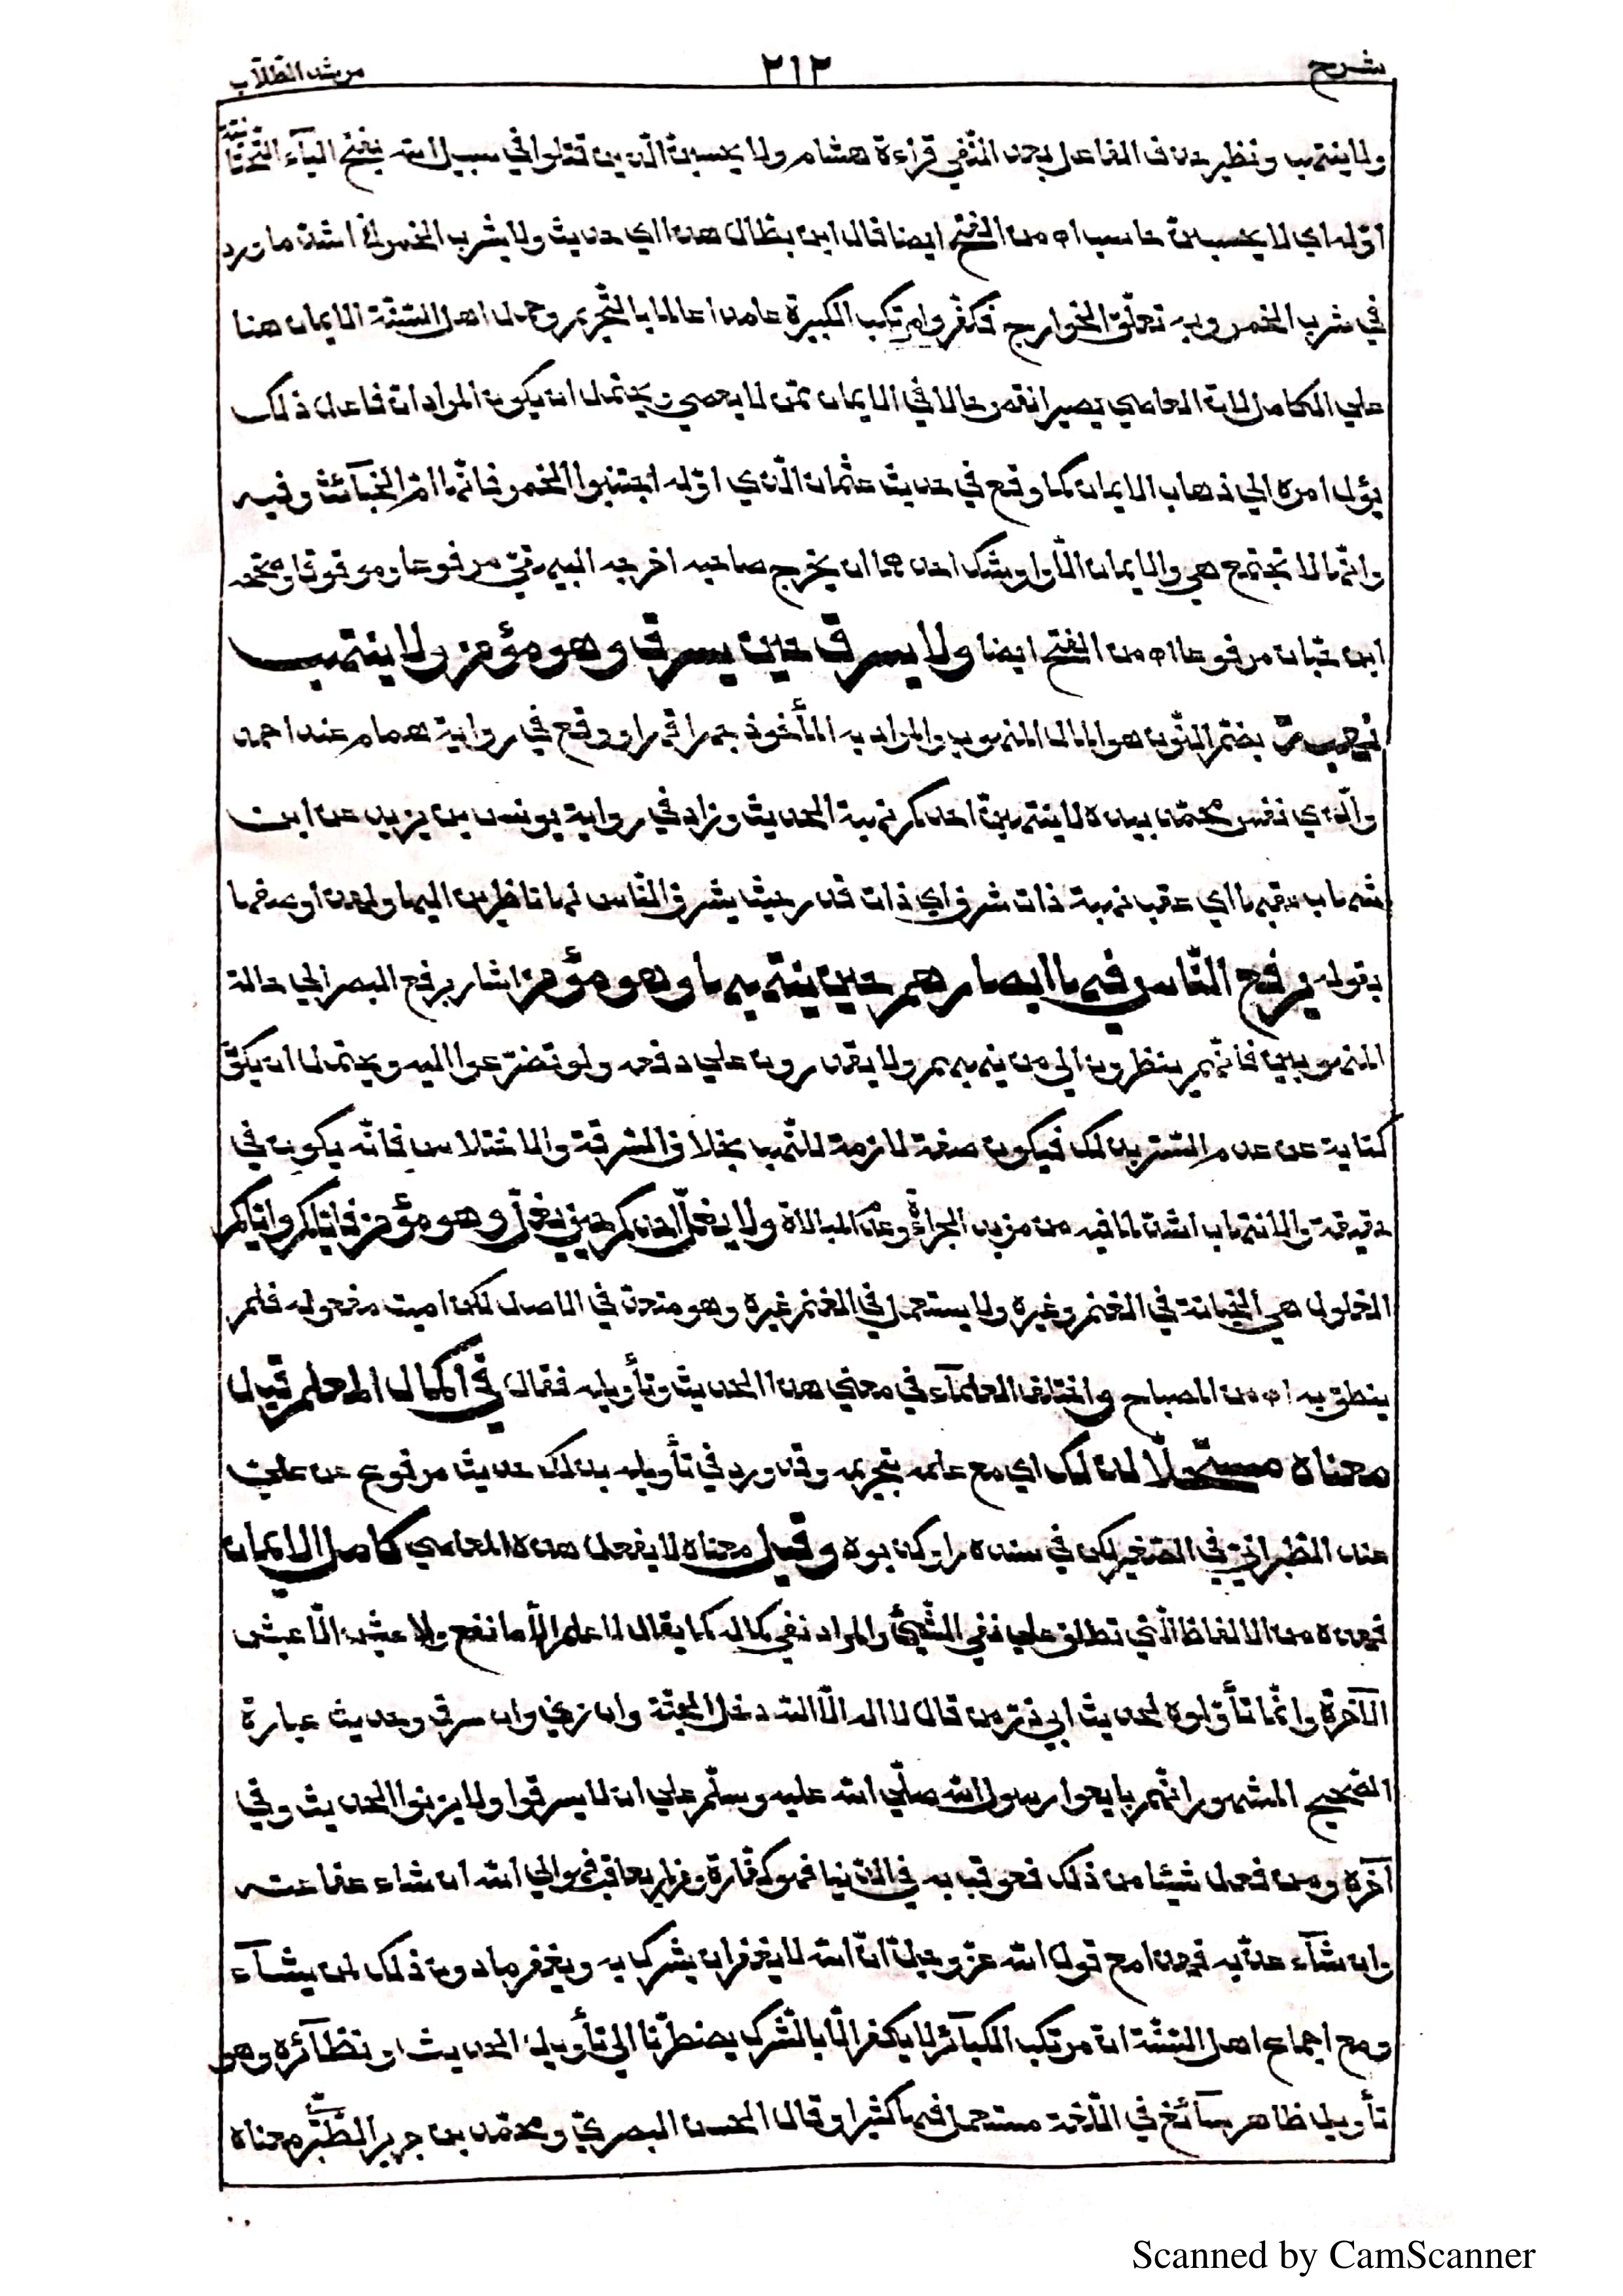 شرح ٢١٢ مرشد الطّلّاب
ولا ينتهب ونظير حذف الفاعل بعد النّفي قراءة هشام ولا يحسبنّ الّذين قتلوا في سبيل الله بفتح اليآء التّحتانيّة
اوّله اي لا يحسبنّ حاسب اه من الفتح ايضا قال ابن بطّال هذا اي حديث ولا يشرب الخمر الخ اشدّ ما ورد
في شرب الخمر وبه تعلّق الخوارج فكفّروا مرتكب الكبيرة عامدا عالما بالتّحريم وحمل اهل السّنّة الايمان هنا
علي الكامل لانّ العاصي يصير انقص حالا في الايمان ممّن لا يعصي ويحتمل ان يكون المراد انّ فاعل ذلك
يؤل امره الي ذهاب الايمان كما وقع في حديث عثمان الّذي اوّله اجتنبوا الخمر فانّها امّ الخبآئث وفيه
وانّها لا تجتمع هي والايمان الّا واوشك احدهما ان يخرج صاحبه اخرجه البيهقيّ مرفوعا وموقوفا وصحّحه
ابن حبّان مرفوعا اه من الفتح ايضا ولا يسرق حين يسرق وهو مؤمن ولا ينتهب
نهبة بضمّ النّون هو المال المنهوب والمراد به المأخوذ جهرا قهرا ووقع في رواية همام عند احمد
والّذي نفس محمّد بيده لا ينتهبنّ احدكم نهبة الحديث وزاد في رواية يونس بن يزيد عن ابن
شهاب عقبها اي عقب نهبة ذات شرف اي ذات قدر حيث يشرف النّاس لها ناظرين اليها ولهذا وصفها
بقوله يرفع النّاس فيها ابصارهم حين ينتهبها وهو مؤمن اشار برفع البصر الي حالة
المنهوبين فانّهم ينظرون الي من ينهبهم ولا يقدرون علي دفعه ولو تضرّعوا اليه ويحتمل ان يكون
كناية عن عدم التّستر بذلك فيكون صفة لازمة للنّهب بخلاف السّرقة والاختلاس فانّه يكون في
خفية والانتهاب اشدّ لما فيه من مزيد الجراءة وعدم المبالاة ولا يغلّ احدكم حين يغلّ وهو مؤمن فايّاكم وايّاكم
الغلول هي الخيانة في المغنم وغيره ولا يستعمل في المغنم غيره وهو متعدّ في الاصل لكن اميت مفعوله فلم
ينطق به اه من المصباح واختلف العلمآء في معني هذا الحديث وتأويله فقال في اكمال المعلم قيل
معناه مستحلّا لذلك اي مع علمه بتحريمه وقد ورد في تأويله بذلك حديث مرفوع عن عليّ
عند الطّبرانيّ في الصّغير لكن في سنده راو كذبوه وقيل معناه لا يفعل هذه المعاصي كامل الايمان
فهذه من الالفاظ الّتي تطلق علي نفي الشّيئ والمراد نفي كماله كما يقال لا علم الّا ما نفع ولا عيش الّا عيش
الآخرة وانّما تأوّلوه لحديث ابي ذرّ من قال لا اله الّا الله دخل الجنّة وان زني وان سرق وحديث عبادة
الصّحيح المشهور انّهم بايعوا رسول الله صلّي الله عليه وسلّم علي ان لا يسرقوا ولا يزنوا الحديث وفي
آخره ومن فعل شيئا من ذلك فعوقب به في الدّنيا فهو كفّارة ومن لم يعاقب فهو الي الله ان شاء عفا عنه
وان شآء عذّبه فهذا مع قول الله عزّ وجلّ انّ الله لا يغفر ان يشرك به ويغفر ما دون ذلك لمن يشآء
ومع اجماع اهل السّنّة انّ مرتكب الكبآئر لا يكفر الّا بالشّرك يضطرّنا الي تأويل الحديث ونظآئره وهو
تأويل ظاهر سآئغ في اللّغة مستعمل فيها كثيرا وقال الحسن البصريّ ومحمّد بن جرير الطّبريّ معناه
Scanned by CamScanner